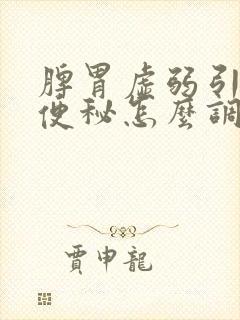 脾胃虛弱引
便秘怎麼調
賈申龍